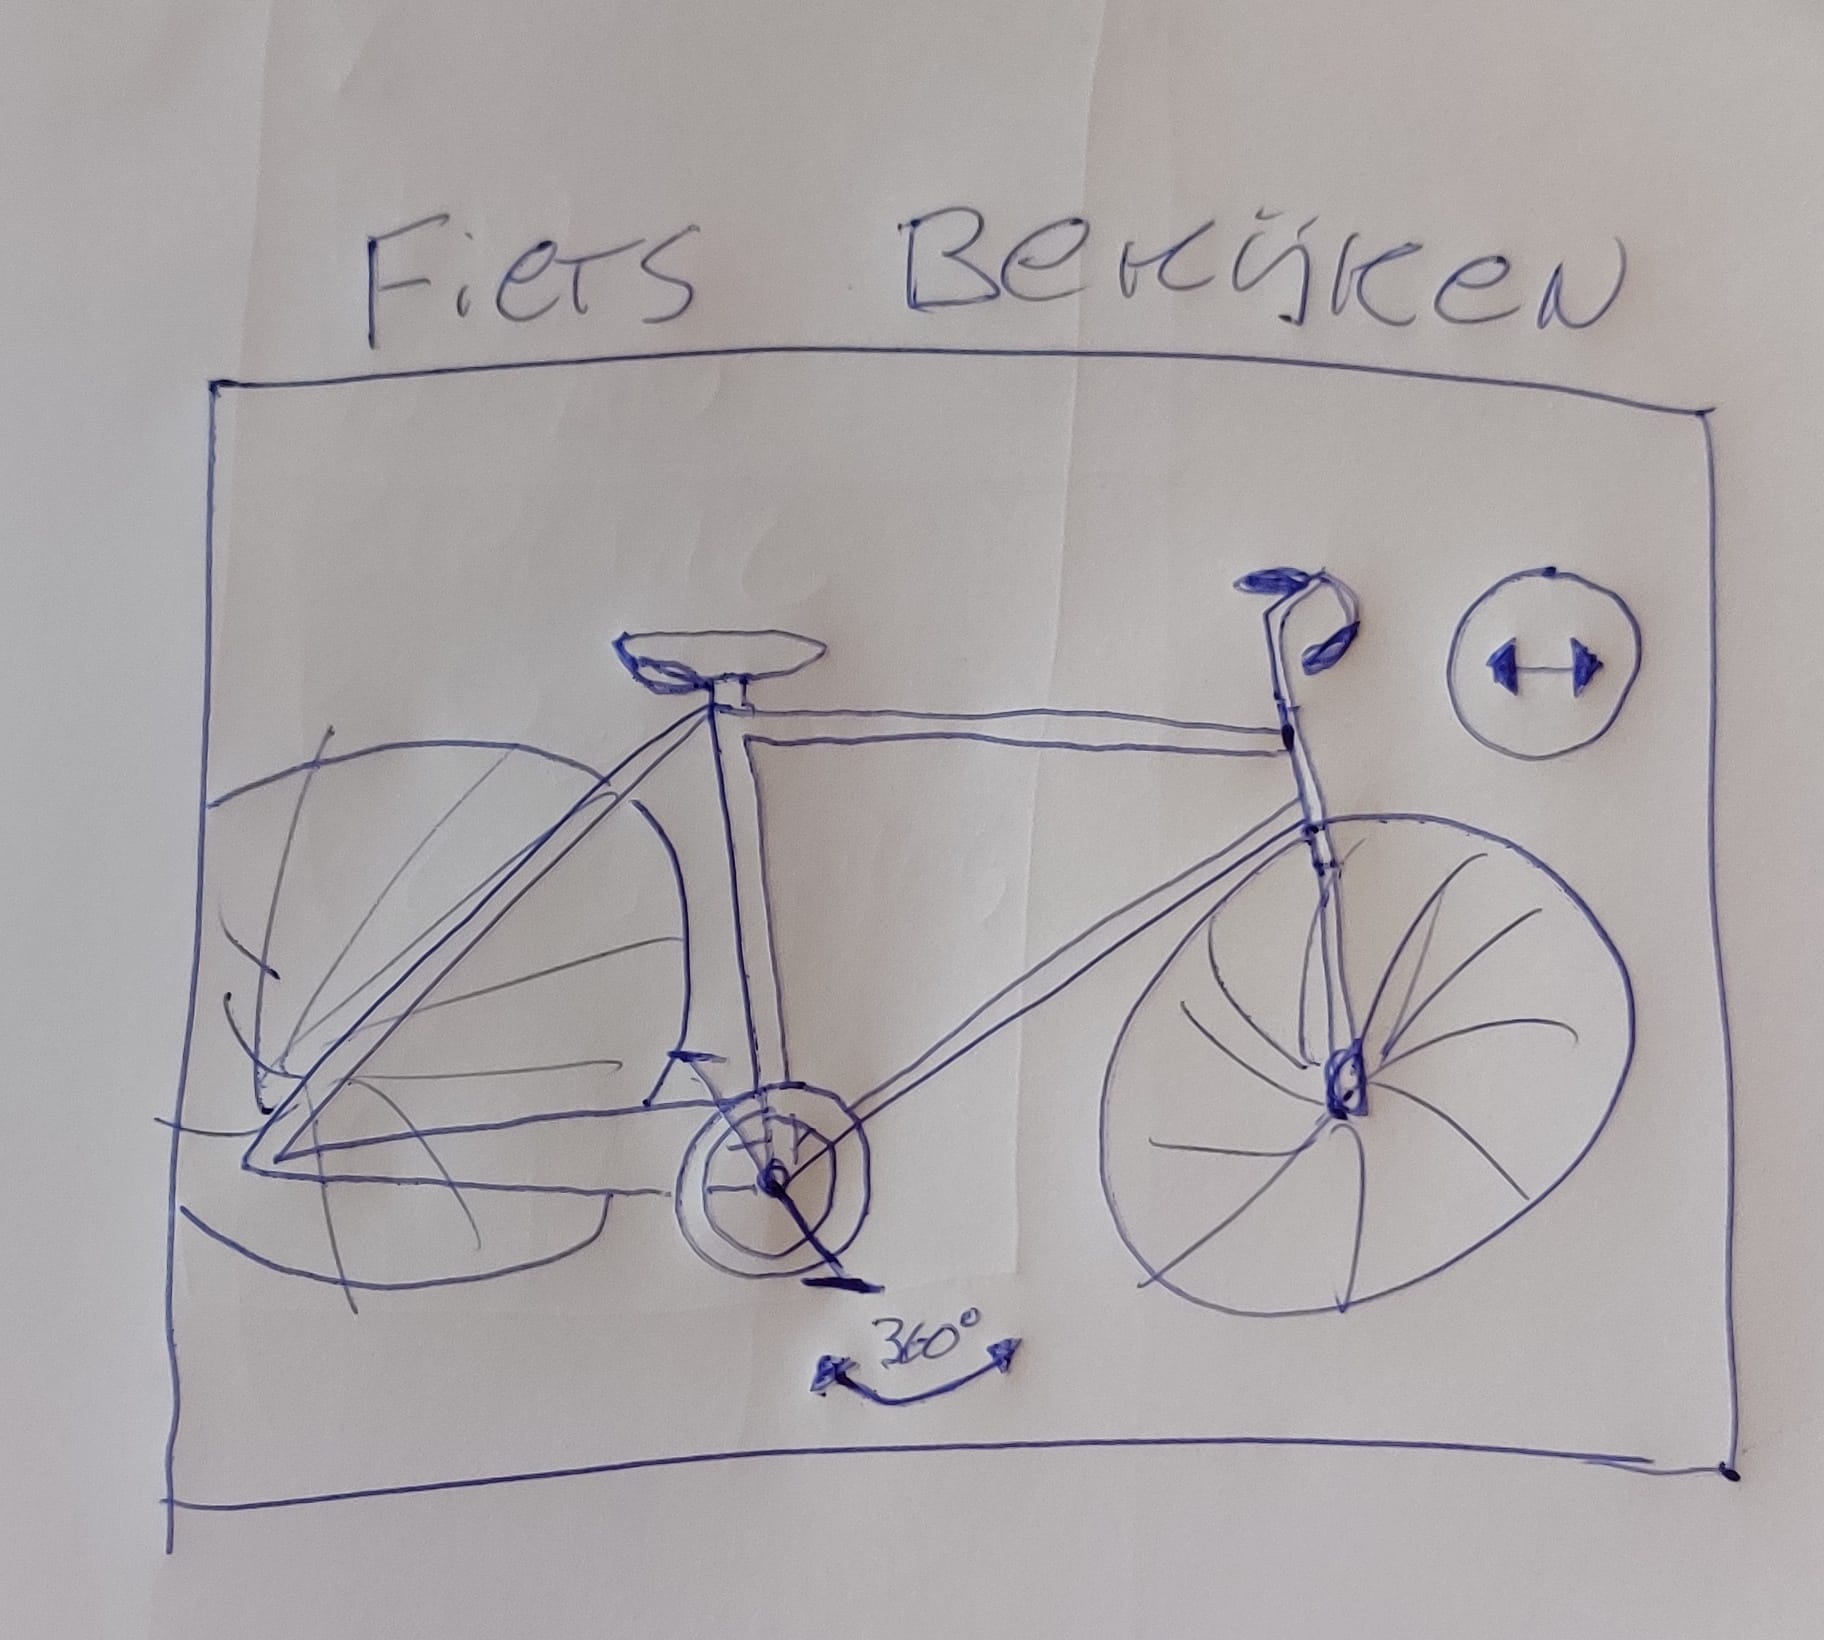 Fiets Bekijken
360°